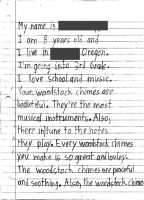 My name is
I am 8 years old and
I live in Oregon.
I'm going into 3rd Grade.
I love school and music.
Your woodstock chimes are
beautiful. They're the most
musical instruments. Also,
there intune to the notes
they play. Every woodstock chimes
you make is so great and lovley.
The woodstock chimes are peaceful
and soothing. Also, the woodstock chimes